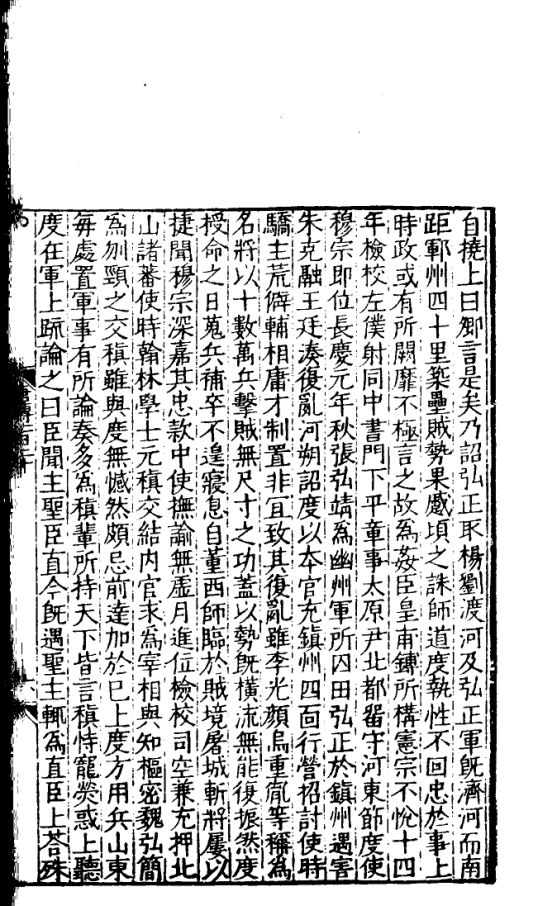 自撓上曰卿言是矣乃詔弘正取楊劉渡河及弘正軍旣濟河而南
距鄆州四十里築壘賊勢果蹙頃之誅師道度執性不回忠於事上
時政或有所闕靡不極言之故爲姦臣皇甫鎛所構憲宗不悅十四
年檢校左僕射同中書門下平章事太原尹北都留守河東節度使
穆宗即位長慶元年秋張弘靖爲幽州軍所囚田弘正於鎮州遇害
朱克融王廷湊復亂河朔詔度以本官充鎮州四面行營招討使時
驕主荒僻輔相庸才制置非宜致其復亂雖李光顏烏重胤等稱爲
名將以十數萬兵擊賊無尺寸之功蓋以勢旣橫流無能復振然度
授命之日蒐兵補卒不遑寢息自董西師臨於賊境屠城斬將屢以
捷聞穆宗深嘉其忠款中使撫諭無虛月進位檢校司空兼充押北
山諸蕃使時翰林學士元稹交結内官求爲宰相與知樞密魏弘簡
爲刎頸之交稹雖與度無憾然頗忌前達加於已上度方用兵山東
每處置軍事有所論奏多爲稹輩所持天下皆言稹恃寵熒惑上聽
度在軍上䟽論之曰臣聞主聖臣直今旣遇聖主輒爲直臣上荅殊